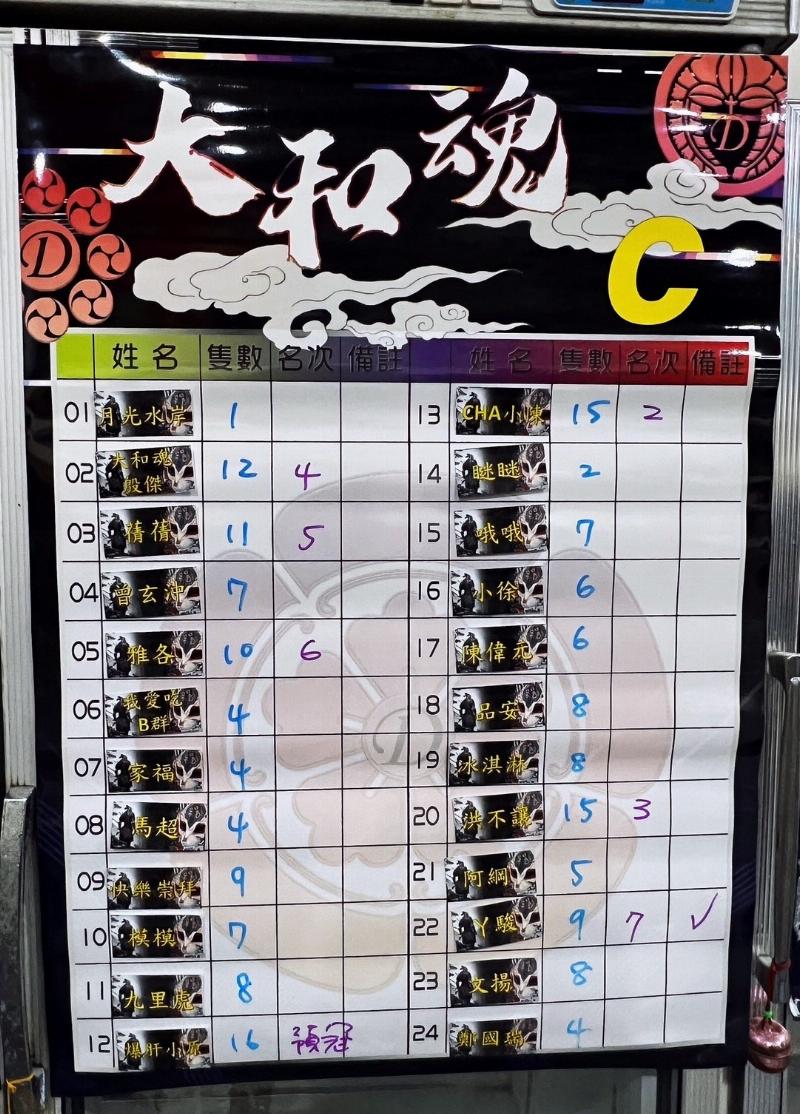 大和魂
D
D
C
姓名 隻數 名次 備註 姓名 隻數 名次 備註
01 月光水岸 1 13 CHA小陳 15 2
02 大和魂
殷傑 12 4 14 瞇瞇 2
03 蒨蒨 11 5 15 哦哦 7
04 曾玄沖 7 16 小徐 6
05 雅各 10 6 17 陳偉元 6
06 我愛吃
B群 4 18 品安 8
07 家福 4 19 冰淇淋 8
08 馬超 4 20 洪不讓 15 3
09 快樂崇拜 9 21 阿綱 5
10 模模 7 22 丫駿 9 7 ✓
11 九里虎 8 23 文揚 8
12 爆肝小原 16 預冠 24 鄭國瑞 4